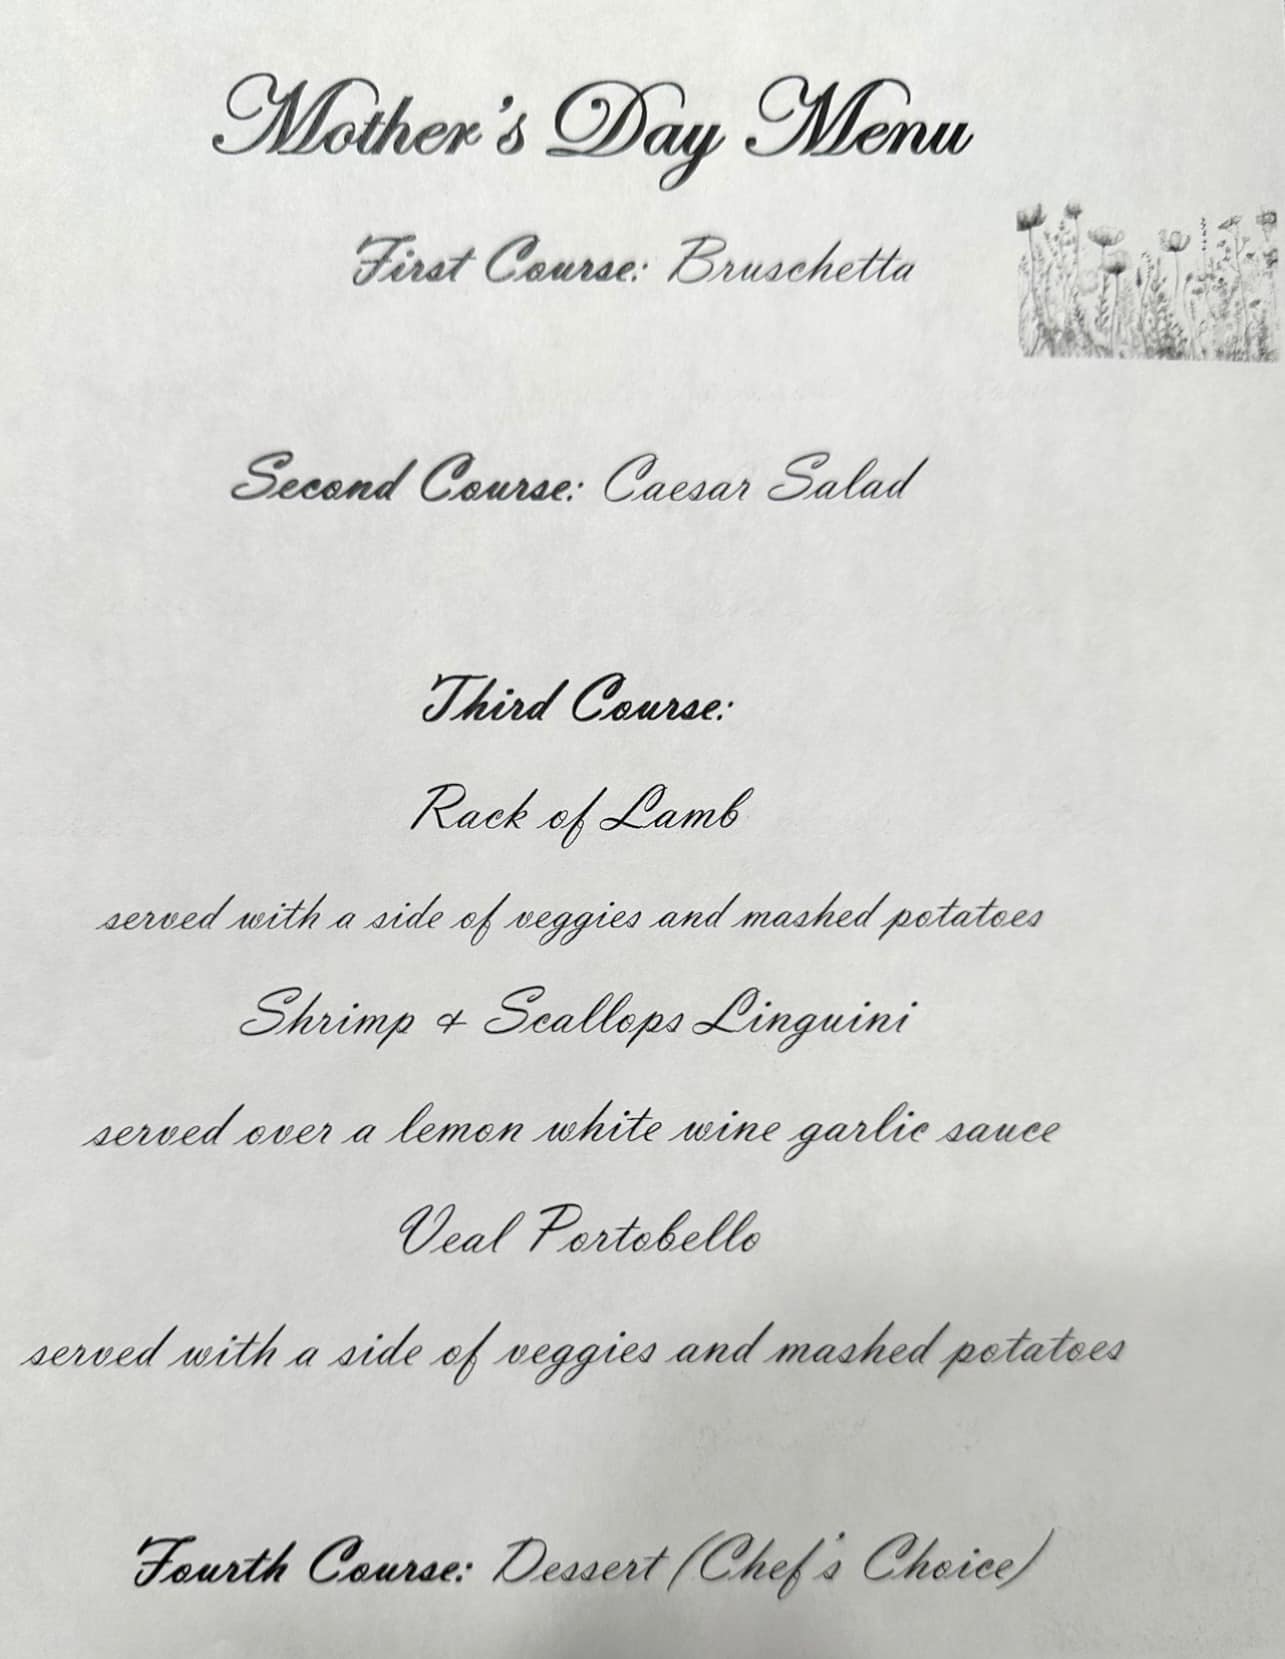 Mother's Day Menu
First Course: Bruschetta
Second Course: Caesar Salad
Third Course:
Rack of Lamb
served with a side of veggies and mashed potatoes
Shrimp & Scallops Linguini
served over a lemon white wine garlic sauce
Veal Portobello
served with a side of veggies and mashed potatoes
Fourth Course: Dessert (Chef's Choice)